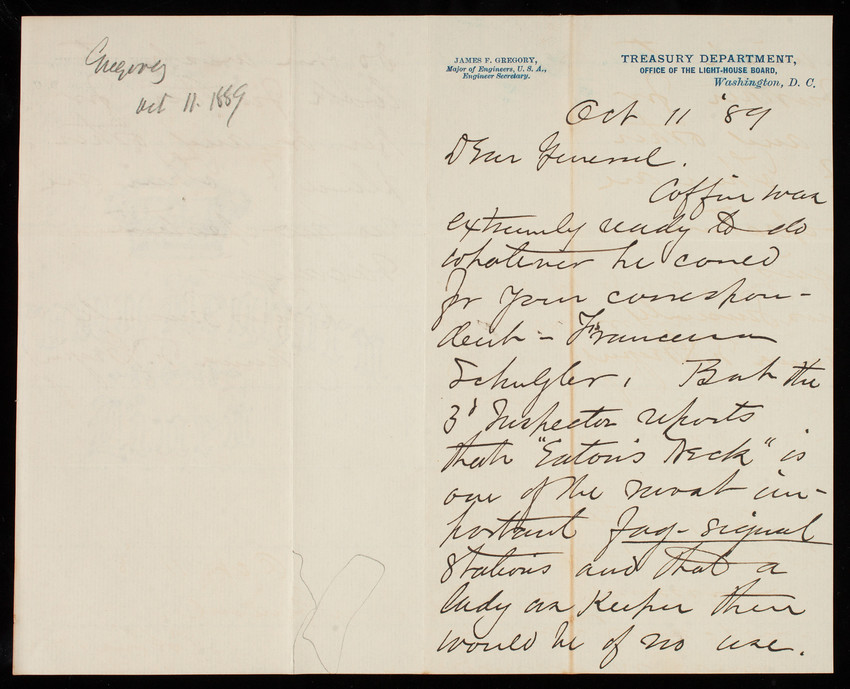 Gregory
Oct 11. 1889
JAMES F. GREGORY,
Major of Engineers, U. S. A.,
Engineer Secretary.
TREASURY DEPARTMENT,
OFFICE OF THE LIGHT-HOUSE BOARD,
Washington, D. C.
Oct 11 '89
Dear General.
Coffin was
extremely ready to do
whatever he could
for your correspon-
dent - Francena
Schuyler. But the
3d Inspector reports
that "Eaton's Neck" is
one of the most im-
portant fog-signal
stations and that a
lady as Keeper there
would be of no use.